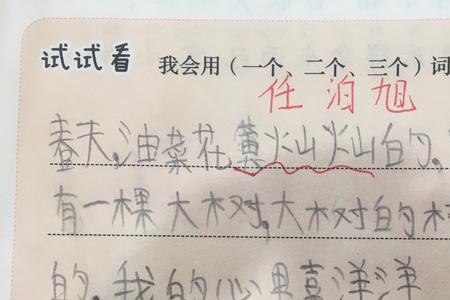 试试看 我会用（一个、二个、三个）词
任泊旭
春天,油菜花黄灿灿的,
有一棵大树,大树的
的,我的心里喜洋洋